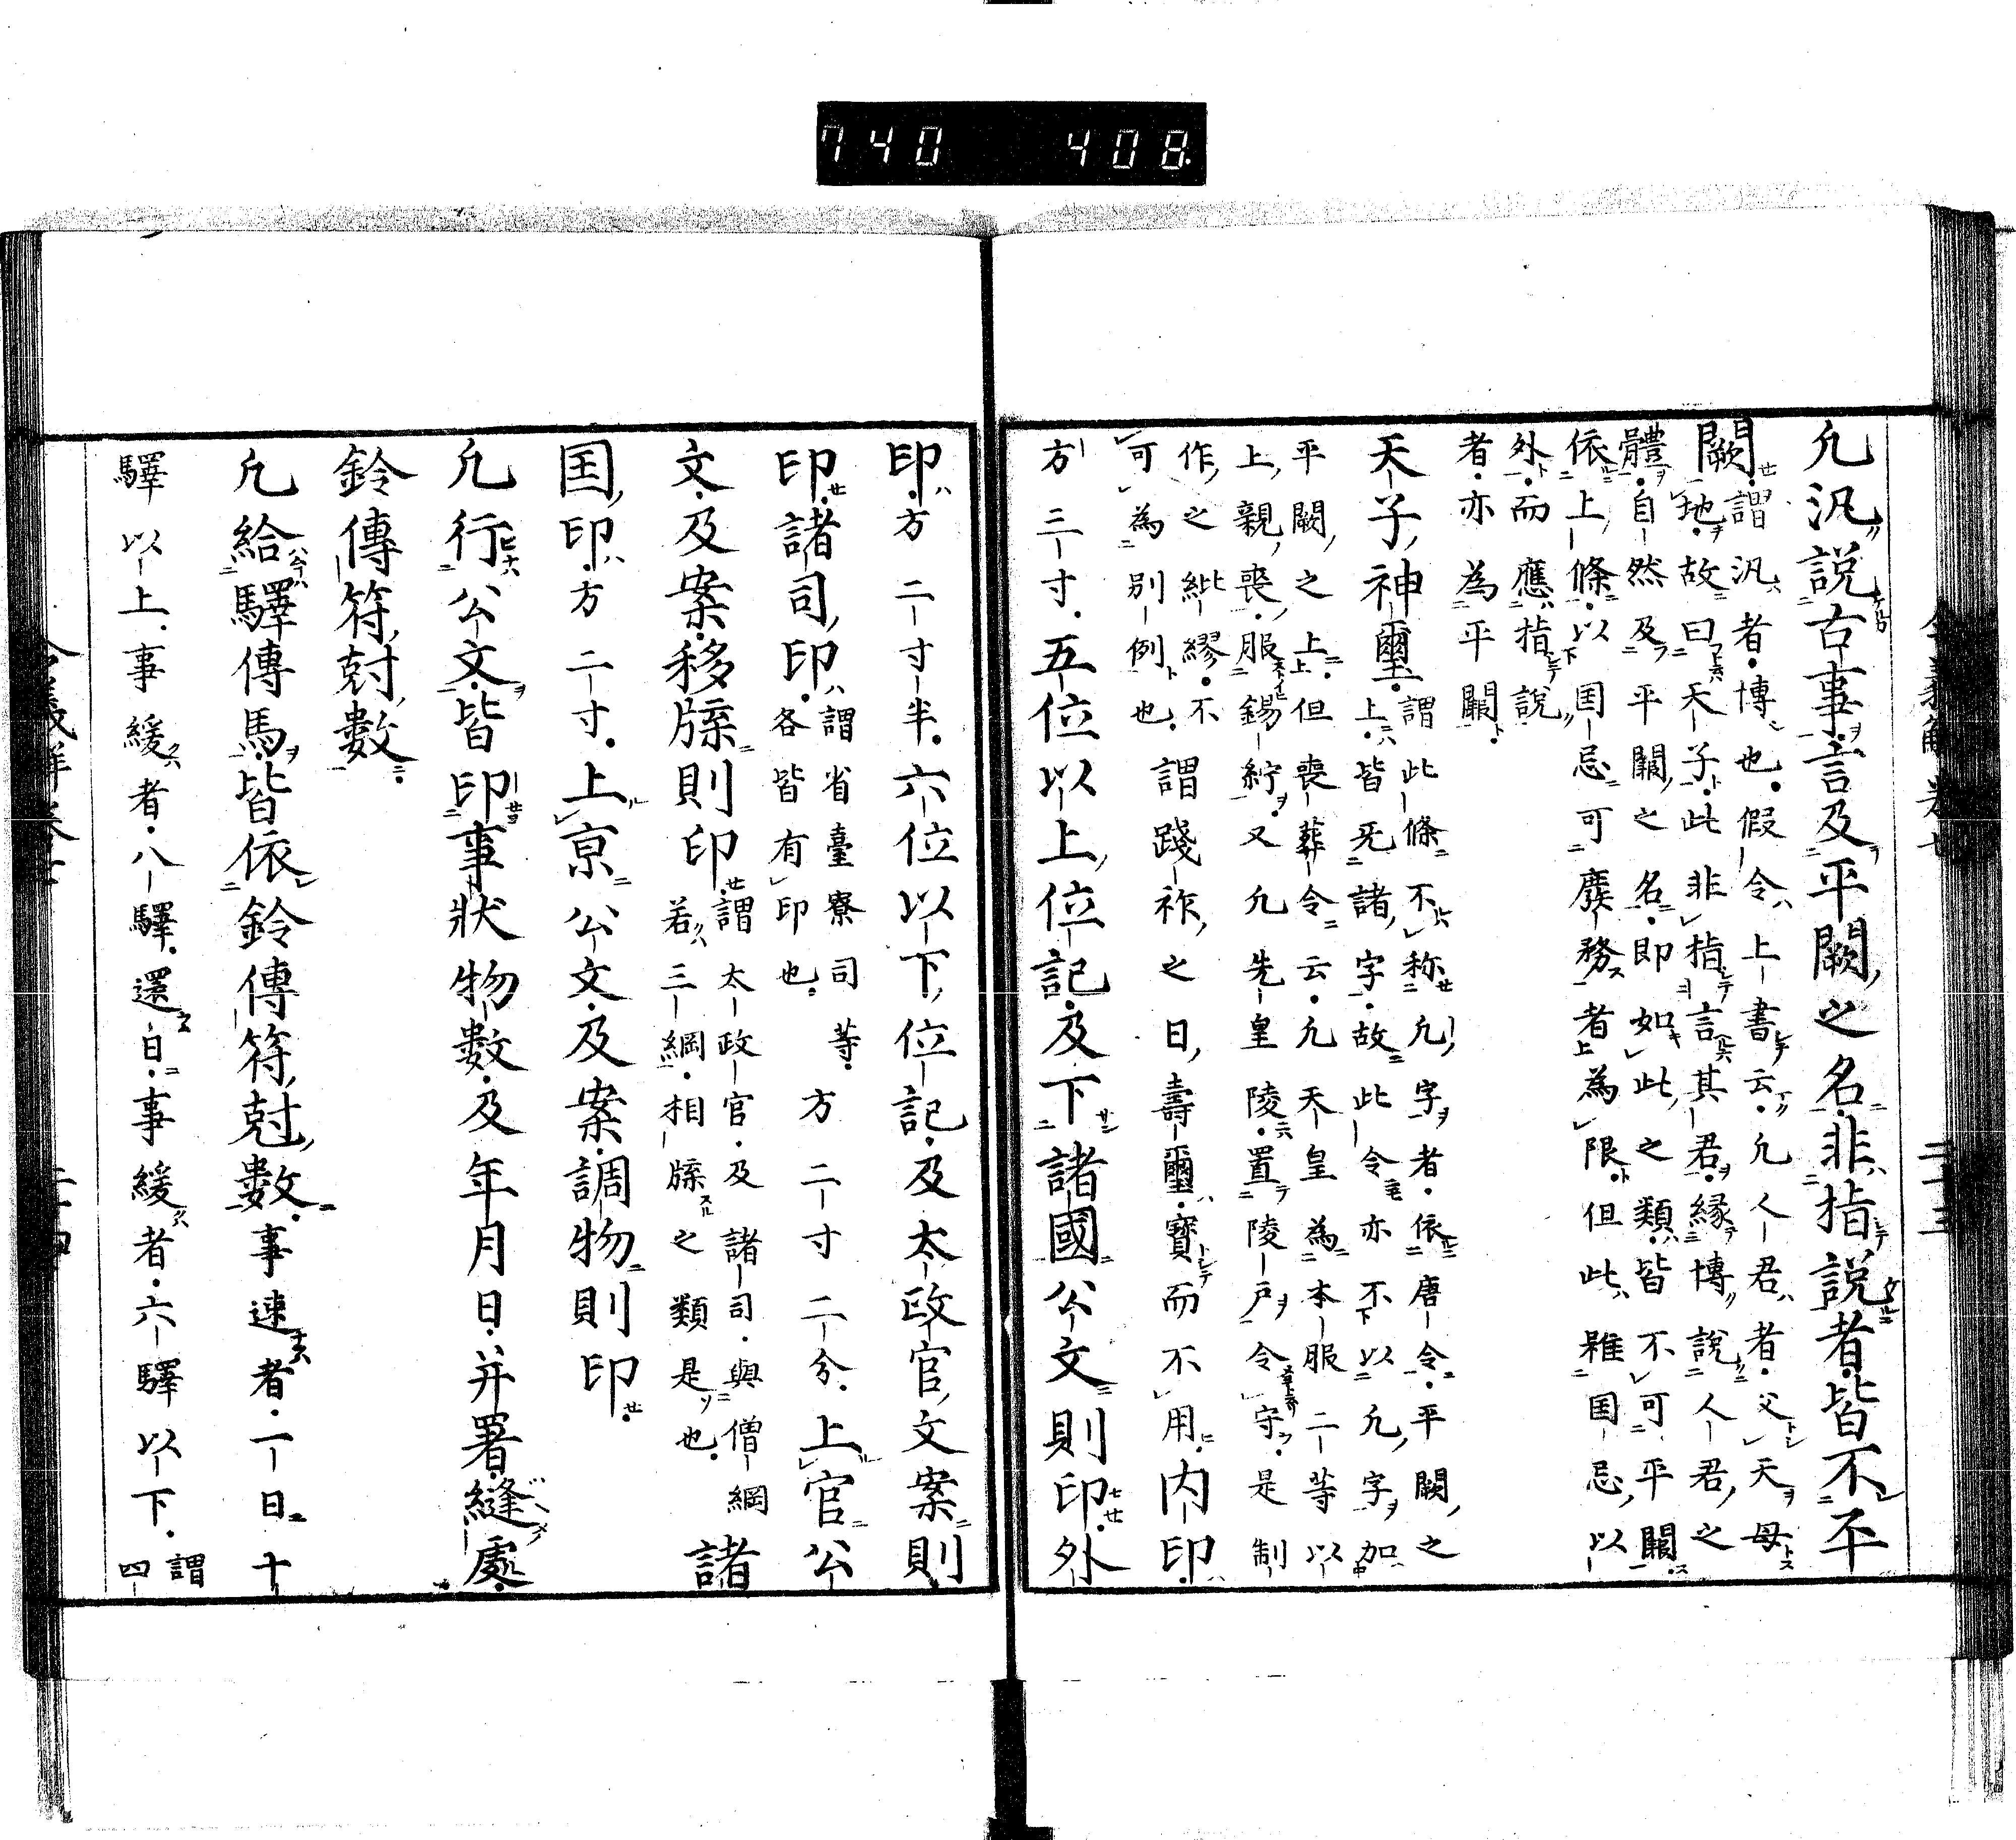 740 408
凢汎說古事言及平闕之名非指說者皆不平
闕謂汎者博也假令上書云凢人君者父天母
地故曰天子此非指言其君縁博說人君之
體自然及平闕之名即如此之類皆不可平闕
依上條以国忌可廢務者為限但此雖国忌以
外而應指說
者亦為平闕
天子神璽謂此條不称凢字者依唐令平闕之
上皆旡諸字故此令亦不以凢字加
平闕之上但喪葬令云凢天皇為本服二等以
上親喪服錫紵又凢先皇陵置陵戸令守是制
作之紕繆不
可為別例也謂踐祚之日壽璽寶而不用内印
方三寸五位以上位記及下諸國公文則印外
印方二寸半六位以下位記及太政官文案則
印諸司印謂省臺寮司等
各皆有印也方二寸二分上官公
文及案移牒則印謂太政官及諸司與僧綱
若三綱相牒之類是也諸
国印方二寸上亰公文及案調物則印
凢行公文皆印事狀物數及年月日并署縫處
鈴傳符尅數
凢給驛傳馬皆依鈴傳符尅數事速者一日十
驛以上事緩者八驛還日事緩者六驛以下謂
四